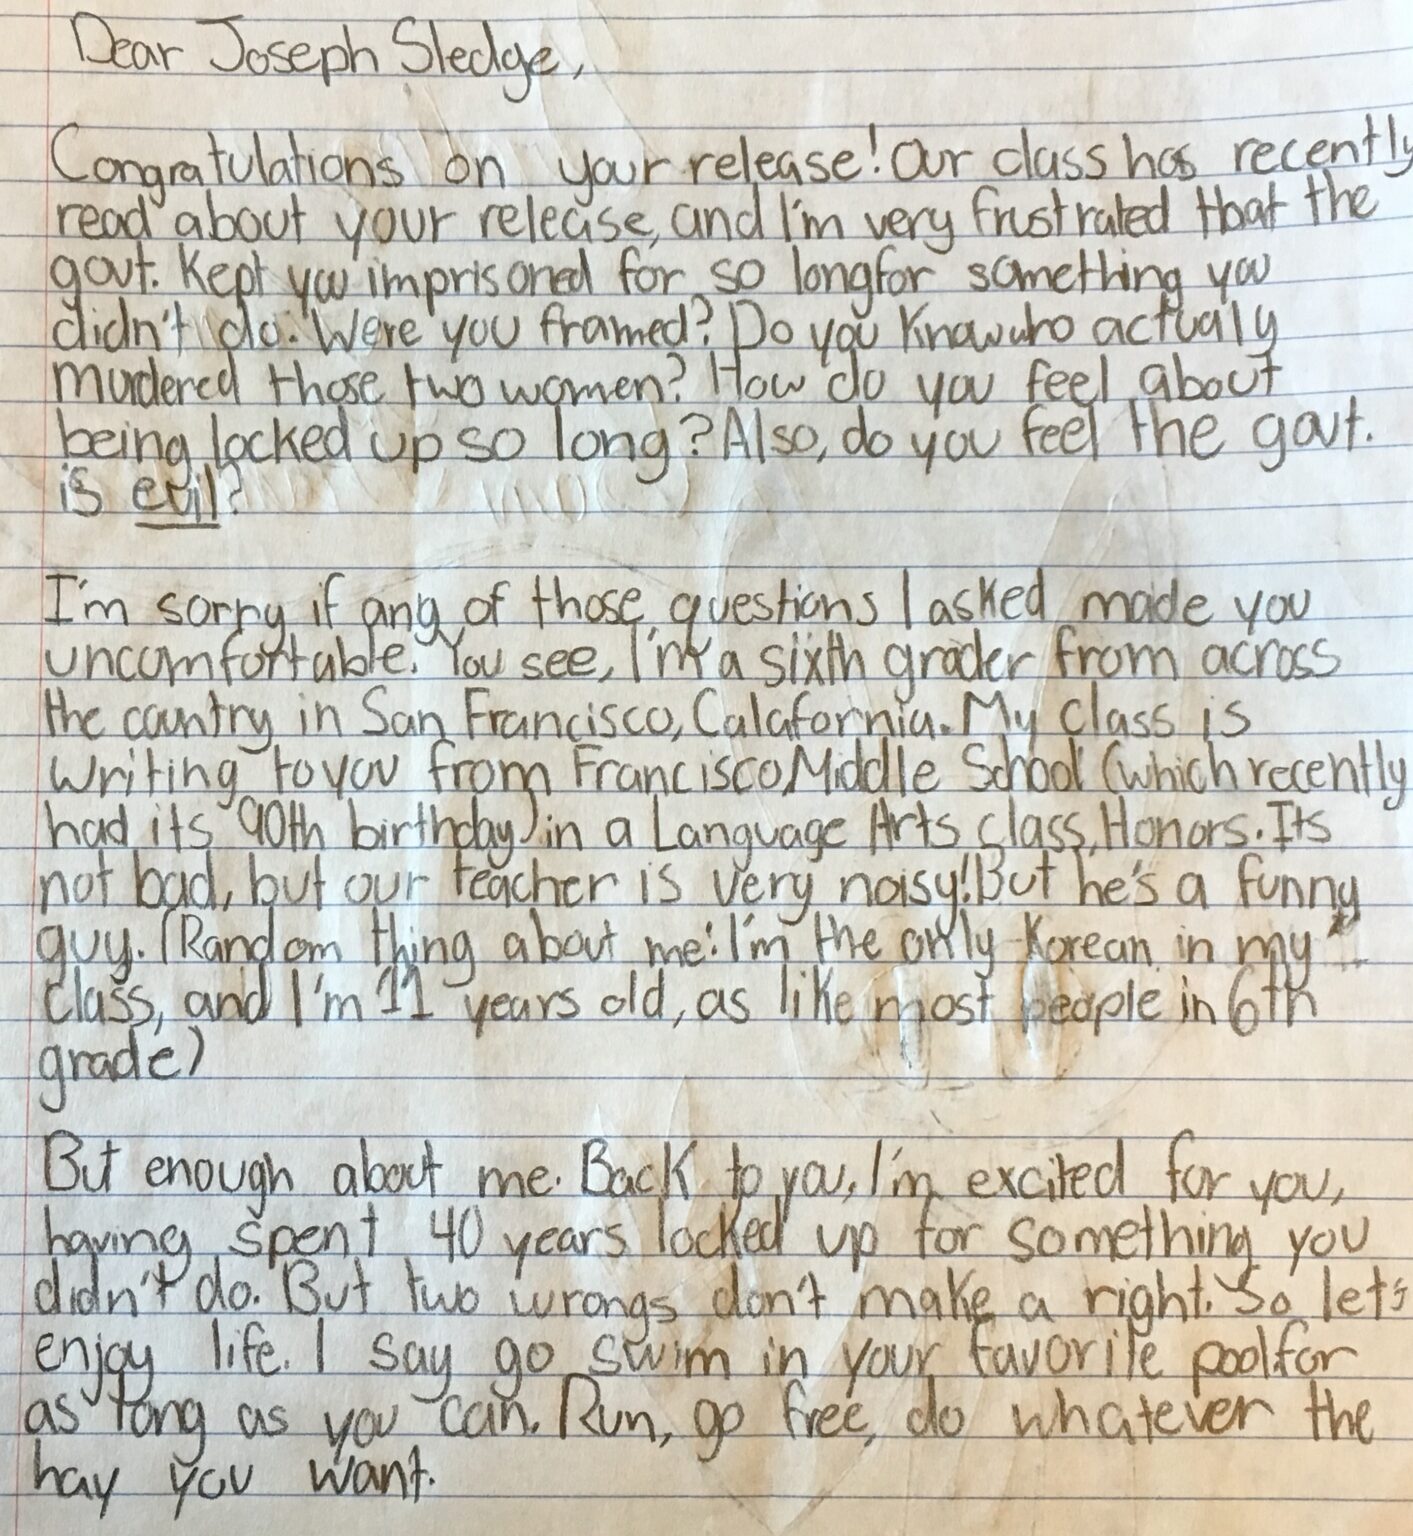 Dear Joseph Sledge,
Congratulations on your release! Our class has recently
read about your release, and I'm very frustrated that the
govt. kept you imprisoned for so long for something you
didn't do. Were you framed? Do you know who actualy
murdered those two women? How do you feel about
being locked up so long? Also, do you feel the govt.
is evil?
I'm sorry if any of those questions I asked made you
uncomfortable. You see, I'm a sixth grader from across
the country in San Francisco, Calafornia. My class is
writing to you from Francisco Middle School (which recently
had its 90th birthday) in a Language Arts class, Honors. Its
not bad, but our teacher is very noisy! But he's a funny
guy. (Random thing about me: I'm the only Korean in my
class, and I'm 11 years old, as like most people in 6th
grade)
But enough about me. Back to you, I'm excited for you,
having spent 40 years locked up for something you
didn't do. But two wrongs don't make a right. So let's
enjoy life. I say go swim in your favorite pool for
as long as you can. Run, go free, do whatever the
hay you want.